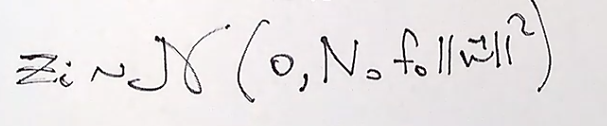 z_i ~ 𝒩(0, N_0 f_0 ||w⃗||²)